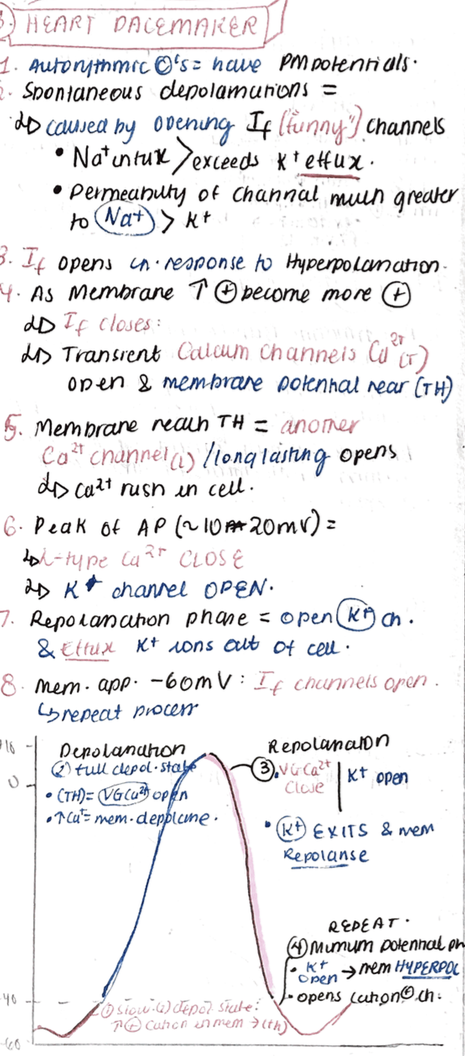 HEART PACEMAKER
1. Autorythmic ©'s = have PM potentials.
2. Spontaneous depolarnations =
↳ caused by opening If (funny") channels
• Na+ influx > exceeds K+ efflux.
• Permeability of channal much greater
to Na+ > K+
3. If opens in response to Hyperpolarnation.
4. As Membrane ↑ ⊕ become more ⊕
↳ If closes:
↳ Transient Calcium channels Ca2+ (T)
open & membrane potential near (TH)
5. Membrane reach TH = another
Ca2+ channel(L) / long lasting opens
↳ Ca2+ rush in cell.
6. Peak of AP (~10 20mV) =
↳ L-type Ca2+ CLOSE
↳ K+ channel OPEN.
7. Repolarnation phase = open K+ ch.
& Efflux K+ ions out of cell.
8. Mem. app. -60mV: If channels open.
↳ repeat process
+10
0
-40
-60
Depolarnation
② full depol. state
• (TH) = VGCa2+ open
• ↑Ca+ = mem. depolarise.
Repolarnation
③. VGCa2+
Close
K+ open
• K+ EXITS & mem
Repolarise
REPEAT.
④ Minimum potential ph
• K+ open → mem HYPERPOL
• opens cation⊕ ch.
① slow (i) depol state:
↑ ⊕ cation in mem → (th)